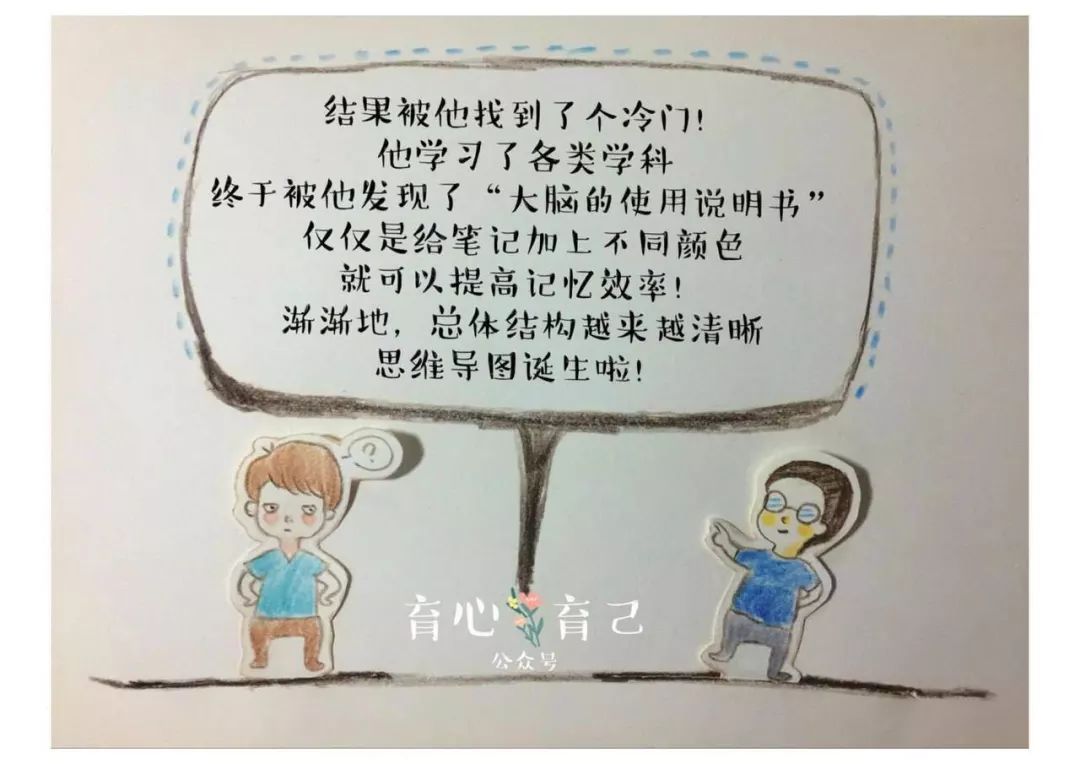 结果被他找到了个冷门!
他学习了各类学科
终于被他发现了“大脑的使用说明书”
仅仅是给笔记加上不同颜色
就可以提高记忆效率!
渐渐地,总体结构越来越清晰
思维导图诞生啦!
?
育心育己
公众号